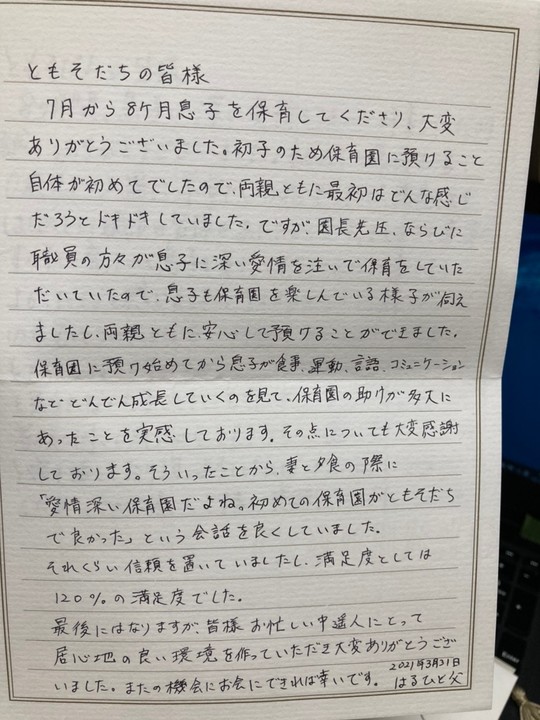 ともそだちの皆様
7月から8ケ月息子を保育してくださり、大変
ありがとうございました。初子のため保育園に預けること
自体が初めてでしたので、両親ともに最初はどんな感じ
だろうとドキドキしていました。ですが、園長先生、ならびに
職員の方々が息子に深い愛情を注いで保育をしていた
だいていたので、息子も保育園を楽しんでいる様子が伺え
ましたし、両親ともに、安心して預けることができました。
保育園に預け始めてから息子が食事、運動、言語、コミュニケーション
などどんどん成長していくのを見て、保育園の助けが多大に
あったことを実感しております。その点についても大変感謝
しております。そういったことから、妻と夕食の際に
「愛情深い保育園だよね。初めての保育園がともそだち
で良かった」という会話を良くしていました。
それくらい信頼を置いていましたし、満足度としては
120%の満足度でした。
最後にはなりますが、皆様お忙しい中
にとって
居心地の良い環境を作っていただき大変ありがとうござ
いました。またの機会にお会いできれば幸いです。
2021年3月31日
はるひと父